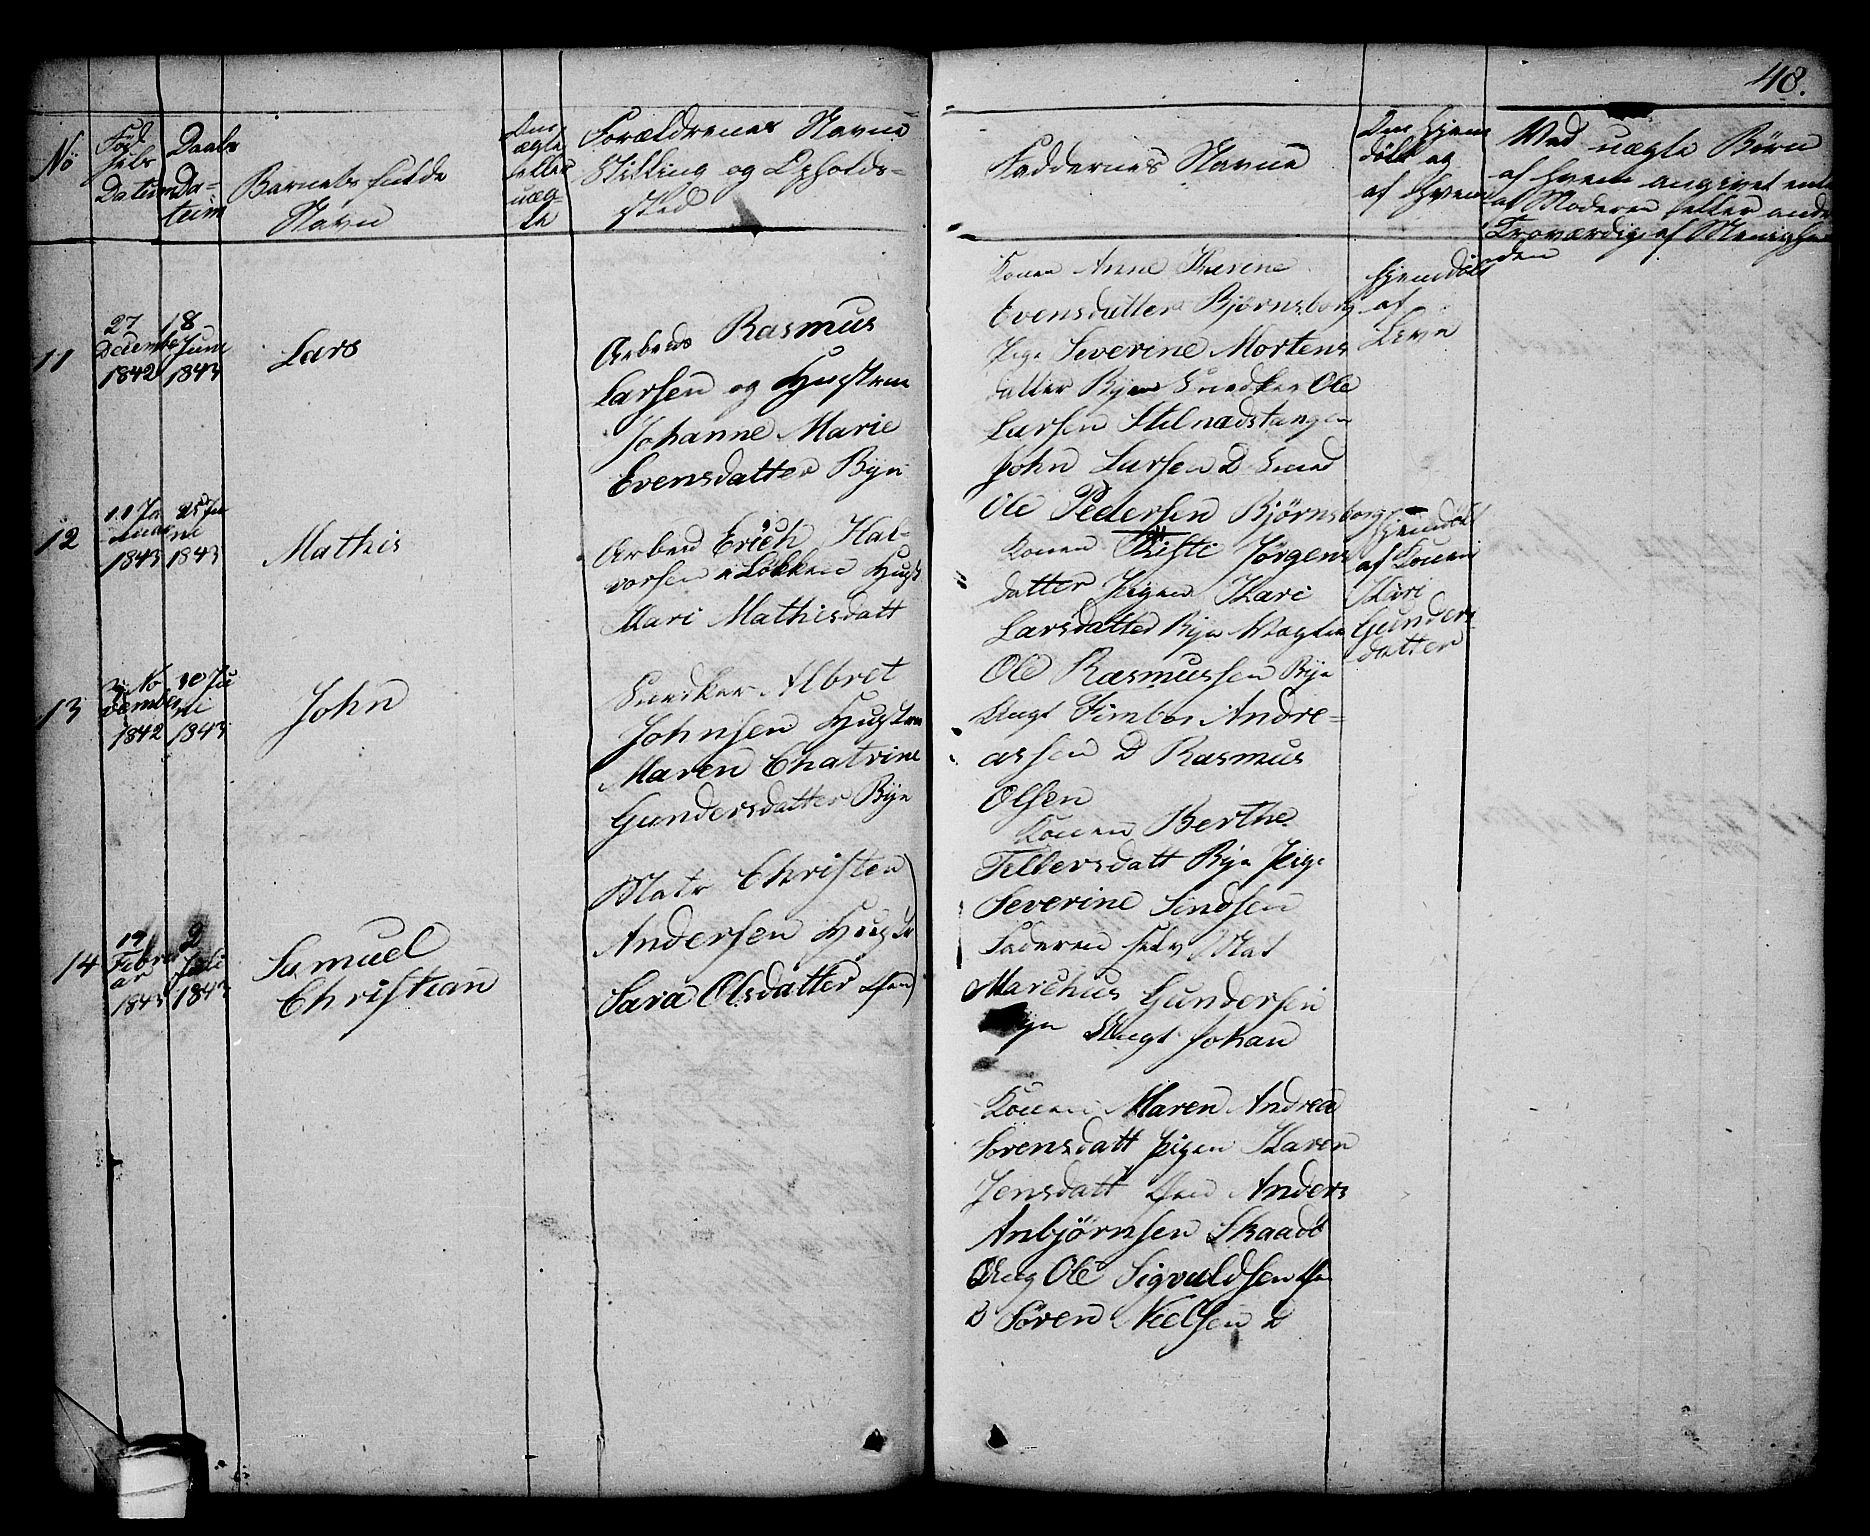 48.
No
Fød
sels
Datum
Daabs
Da-
tum
Barnets fulde
Navn
Om
ægte
eller
uæg-
te
Forældrenes Navne
Stilling og Opholds-
sted
Faddernes Navne
Om hjem
døbt og
af hvem
Ved uægte Børn
af hvem angivet enten
af Moderen eller andre
Troværdige af Menighe
den
11
27
Decembe
1842
18
Juni
1843
Lars
Arbeds Rasmus
Larsen og Hustrue
Johanne Marie
Evensdatter Byn
Konen Anne
Evensdatter Bjørnsborg
Pige Severine Mortens
datter Byen Snedker Ole
Larsen
John Larsen D
Ole Pedersen Bjørnsborg
Hjemdøbt
af
12
11 Ja
nuar
1843
25 Ju
ni
1843
Mathis
Arbeid Erich Hal-
vorsen Løkken Hust
Mari Mathisdatt
Konen Kisti Jørgens
datter Pigen Kari
Larsdatter Byn
Ole Rasmussen Byn
Ungk Andre-
assen D Rasmus
Olsen
Hjemdøbt
af Konen
Kari
Gunders
datter
13
No
vember
1842
10 Ju
ni
1843
John
Snedker Albret
Johnsen Hustrue
Maren Chatrine
Gundersdatter Byn
Konen Berthe
Tellersdatt Byn Pige
Severine
Faderen selv Mat
Marchus Gundersen
Byn Ungk Johan
14
19
Febru
ar
1843
2
Juli
1843
Samuel
Christian
Matr Christen
Andersen Hustr
Sara Olsdatter Øen
Konen Maren Andrea
Sørensdatt Pigen Karen
Jensdatt Øen Anders
Anbjørnsen Skaadø
Ung Ole Sigvaldsen Øen
D Søren Nielsen D